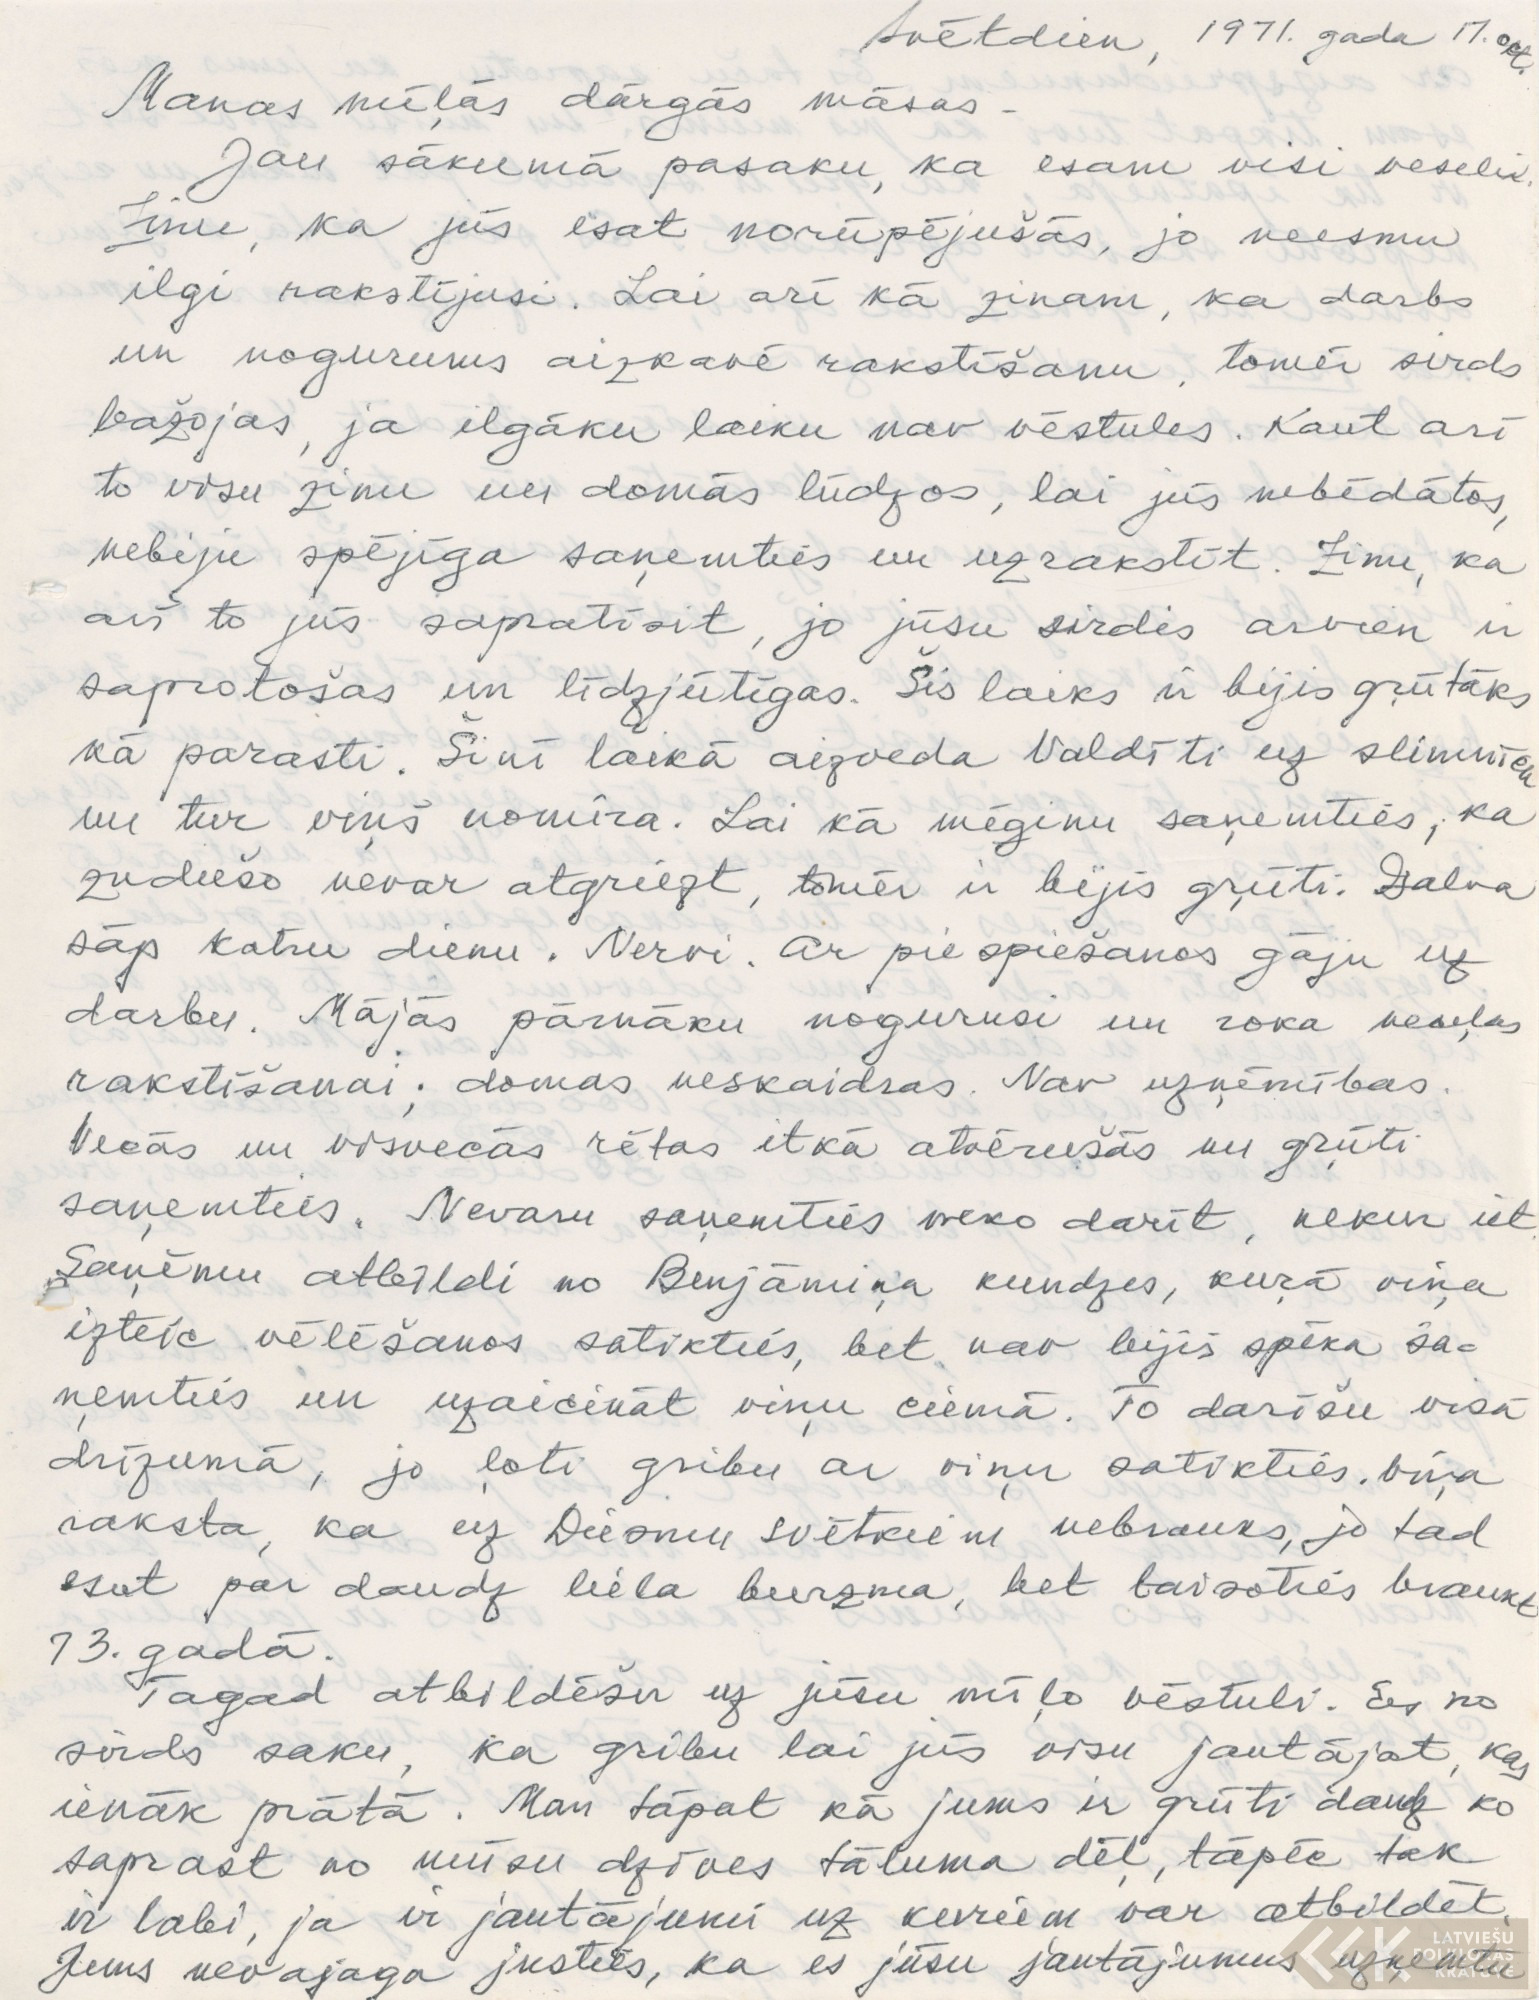 Svētdien, 1971. gada 17. okt.
Manas mīļās dārgās māsas –
Jau sākumā pasaku, ka esam visi veseli.
Zinu, ka jūs esat norūpējušās, jo neesmu
ilgi rakstījusi. Lai arī kā zinam, ka darbs
un nogurums aizkavē rakstīšanu, tomēr sirds
bažojas, ja ilgāku laiku nav vēstules. Kaut arī
to visu zinu un domās lūdzos, lai jūs nebēdātos,
nebiju spējīga saņemties un uzrakstīt. Zinu, ka
arī to jūs sapratīsit, jo jūsu sirdis arvien ir
saprotošas un līdzjūtīgas. Šis laiks ir bijis grūtāks
kā parasti. Šinī laikā aizveda Valdīti uz slimnīcu
un tur viņš nomira. Lai kā mēģinu saņemties, ka
zudušo nevar atgriezt, tomēr ir bijis grūti. Galva
sāp katru dienu. Nervi. Ar piespiešanos gāju uz
darbu. Mājās pārnāku nogurusi un roka neceļas
rakstīšanai; domas neskaidras. Nav uzņēmības.
Vecās un visvecās rētas itkā atvērušās un grūti
saņemties. Nevaru saņemties neko darīt, nekur iet.
Saņēmu atbildi no Benjāmiņa kundzes, kuŗā viņa
izteic vēlēšanos satikties, bet nav bijis spēka sa-
ņemties un uzaicināt viņu ciemā. To darīšu visā
drīzumā, jo ļoti gribu ar viņu satikties. Viņa
raksta, ka uz Dziesmu svētkiem nebrauks, jo tad
esot par daudz liela burzma, bet taisoties braukt
73. gadā.
Tagad atbildēšu uz jūsu mīļo vēstuli. Es no
sirds saku, ka gribu lai jūs visu jautājat, kas
ienāk prātā. Man tāpat kā jums ir grūti daudz ko
saprast no mūsu dzīves tāluma dēļ, tāpēc tak
ir labi, ja ir jautājumi uz kuriem var atbildēt.
Jums nevajaga justies, ka es jūsu jautājumus uzņemtu
LATVIEŠU
FOLKLORAS
KRĀTUVE